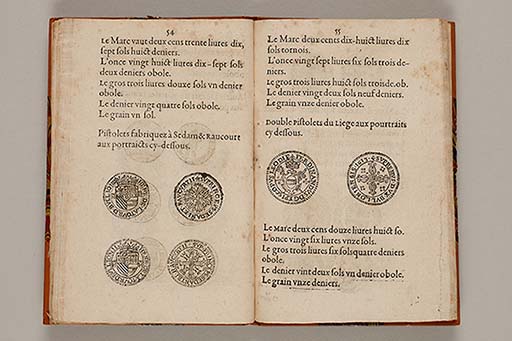 54
Le Marc vaut deux cens trente liures dix,
sept sols huict deniers.
L'once vingt huict liures dix-sept sols
deux deniers obole.
Le gros trois liures douze sols vn denier
obole.
Le denier vingt quatre sols obole.
Le grain vn sol.
Pistolets fabriquez à Sedam & Raucourt
aux portraicts cy-dessous.
55
Le Marc deux cents dix-huict liures dix
sols tornois.
L'once vingt sept liures six sols trois de-
niers.
Le gros trois liures huict sols trois de. ob.
Le denier vingt deux sols neuf deniers.
Le grain vnze denier obole.
Double Pistolets du Liege aux pourtraits
cy dessous.
Le Marc deux cens douze liures huict so.
L'once vingt six liures vnze sols.
Le gros trois liures six sols quatre deniers
obole.
Le denier vint deux sols vn denier obole.
Le grain vnze deniers.